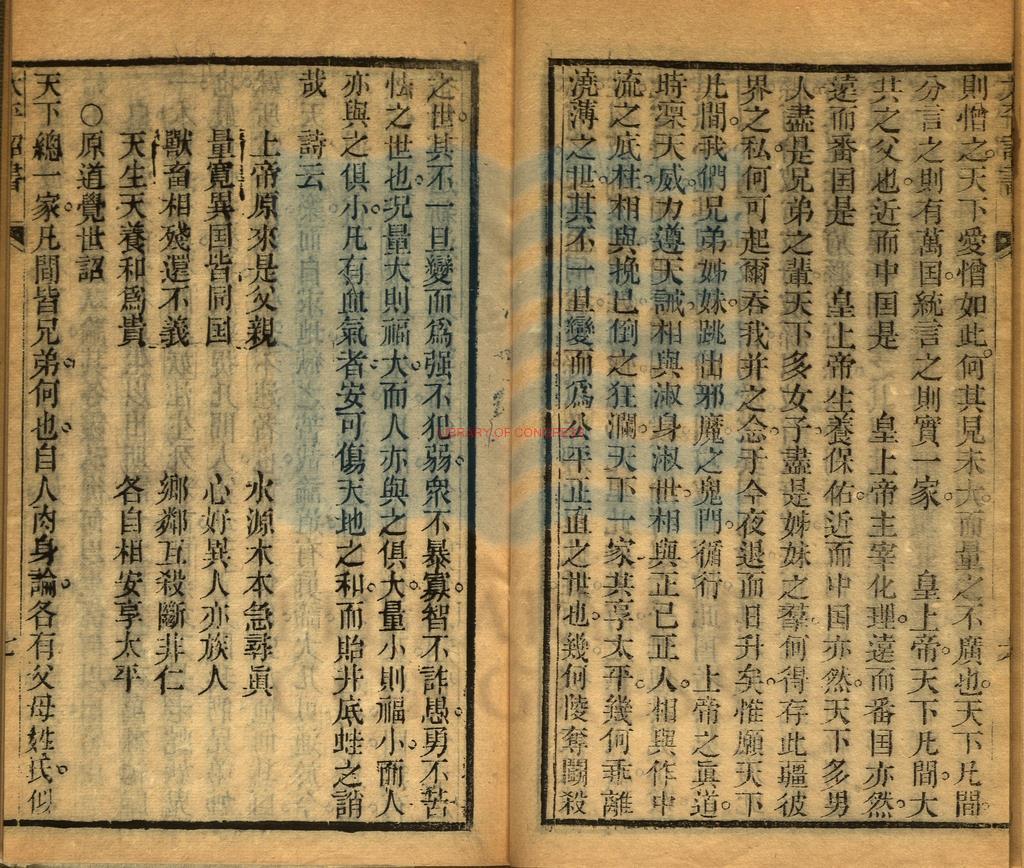 則憎之。天下愛憎如此。何其見未大而量之不廣也。天下凡間
分言之則有萬囯。統言之則實一家。　皇上帝。天下凡間大
共之父也。近而中囯是　皇上帝主宰化理。遠而番囯亦然。
遠而番囯是　皇上帝生養保佑。近而中囯亦然。天下多男
人盡是兄弟之輩。天下多女子盡是姊妹之羣。何得存此疆彼
界之私。何可起爾吞我并之念。于今夜退而日升矣。惟願天下
凡間我們兄弟姊妹。跳出邪魔之鬼門。循行　上帝之眞道。
時凛天威。力遵天誡。相與淑身淑世。相與正己正人。相與作中
流之底柱。相與挽已倒之狂瀾。天下一家。共享太平。幾何乖離
澆薄之世。其不一旦變而爲公平正直之世也。幾何陵奪鬭殺
之世。其不一旦變而爲强不犯弱。衆不暴寡。智不詐愚。勇不苦
怯之世也。况量大則福大。而人亦與之俱大。量小則福小。而人
亦與之俱小。凡有血氣者安可傷天地之和。而貽井底蛙之誚
哉。詩云
上帝原來是父親　水源木本急尋眞
量寛異囯皆同囯　心好異人亦族人
獸畜相殘還不義　鄉鄰互殺斷非仁
天生天養和爲貴　各自相安享太平
○原道覺世詔
天下總一家。凡間皆兄弟。何也。自人肉身論。各有父母姓氏。似
太平詔書
七
LIBRARY OF CONGRESS